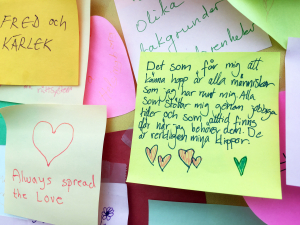 FRED och
KÄRLEK
olika
bakgrunder
Det som får mig att
känna hopp är alla människor
som jag har runt mig. Alla
som stöttar mig genom jobbiga
tider och som alltid finns
där när jag behöver dem. De
är verkligen mina klippor.
Always spread
the Love